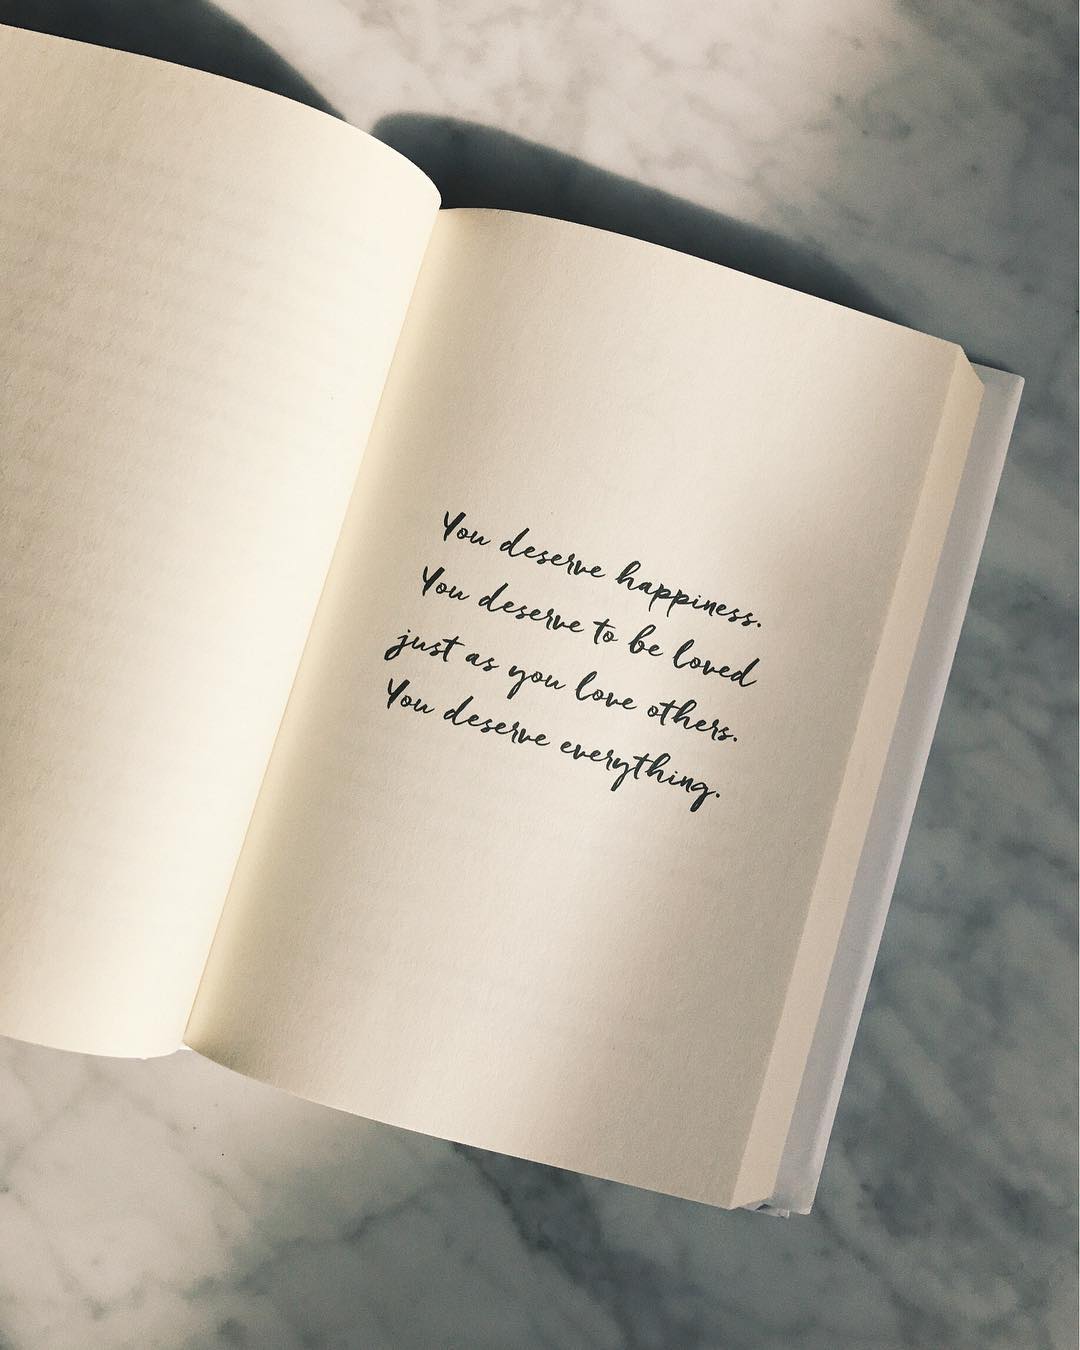 You deserve happiness.
You deserve to be loved
just as you love others.
You deserve everything.